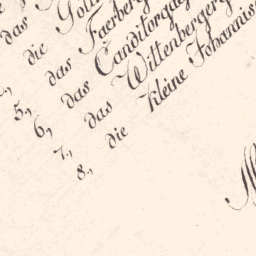 das
die Gott
5., das Faerberg
6, das Canditorgas
7., das Wittenberger
8., die kleine Johannis